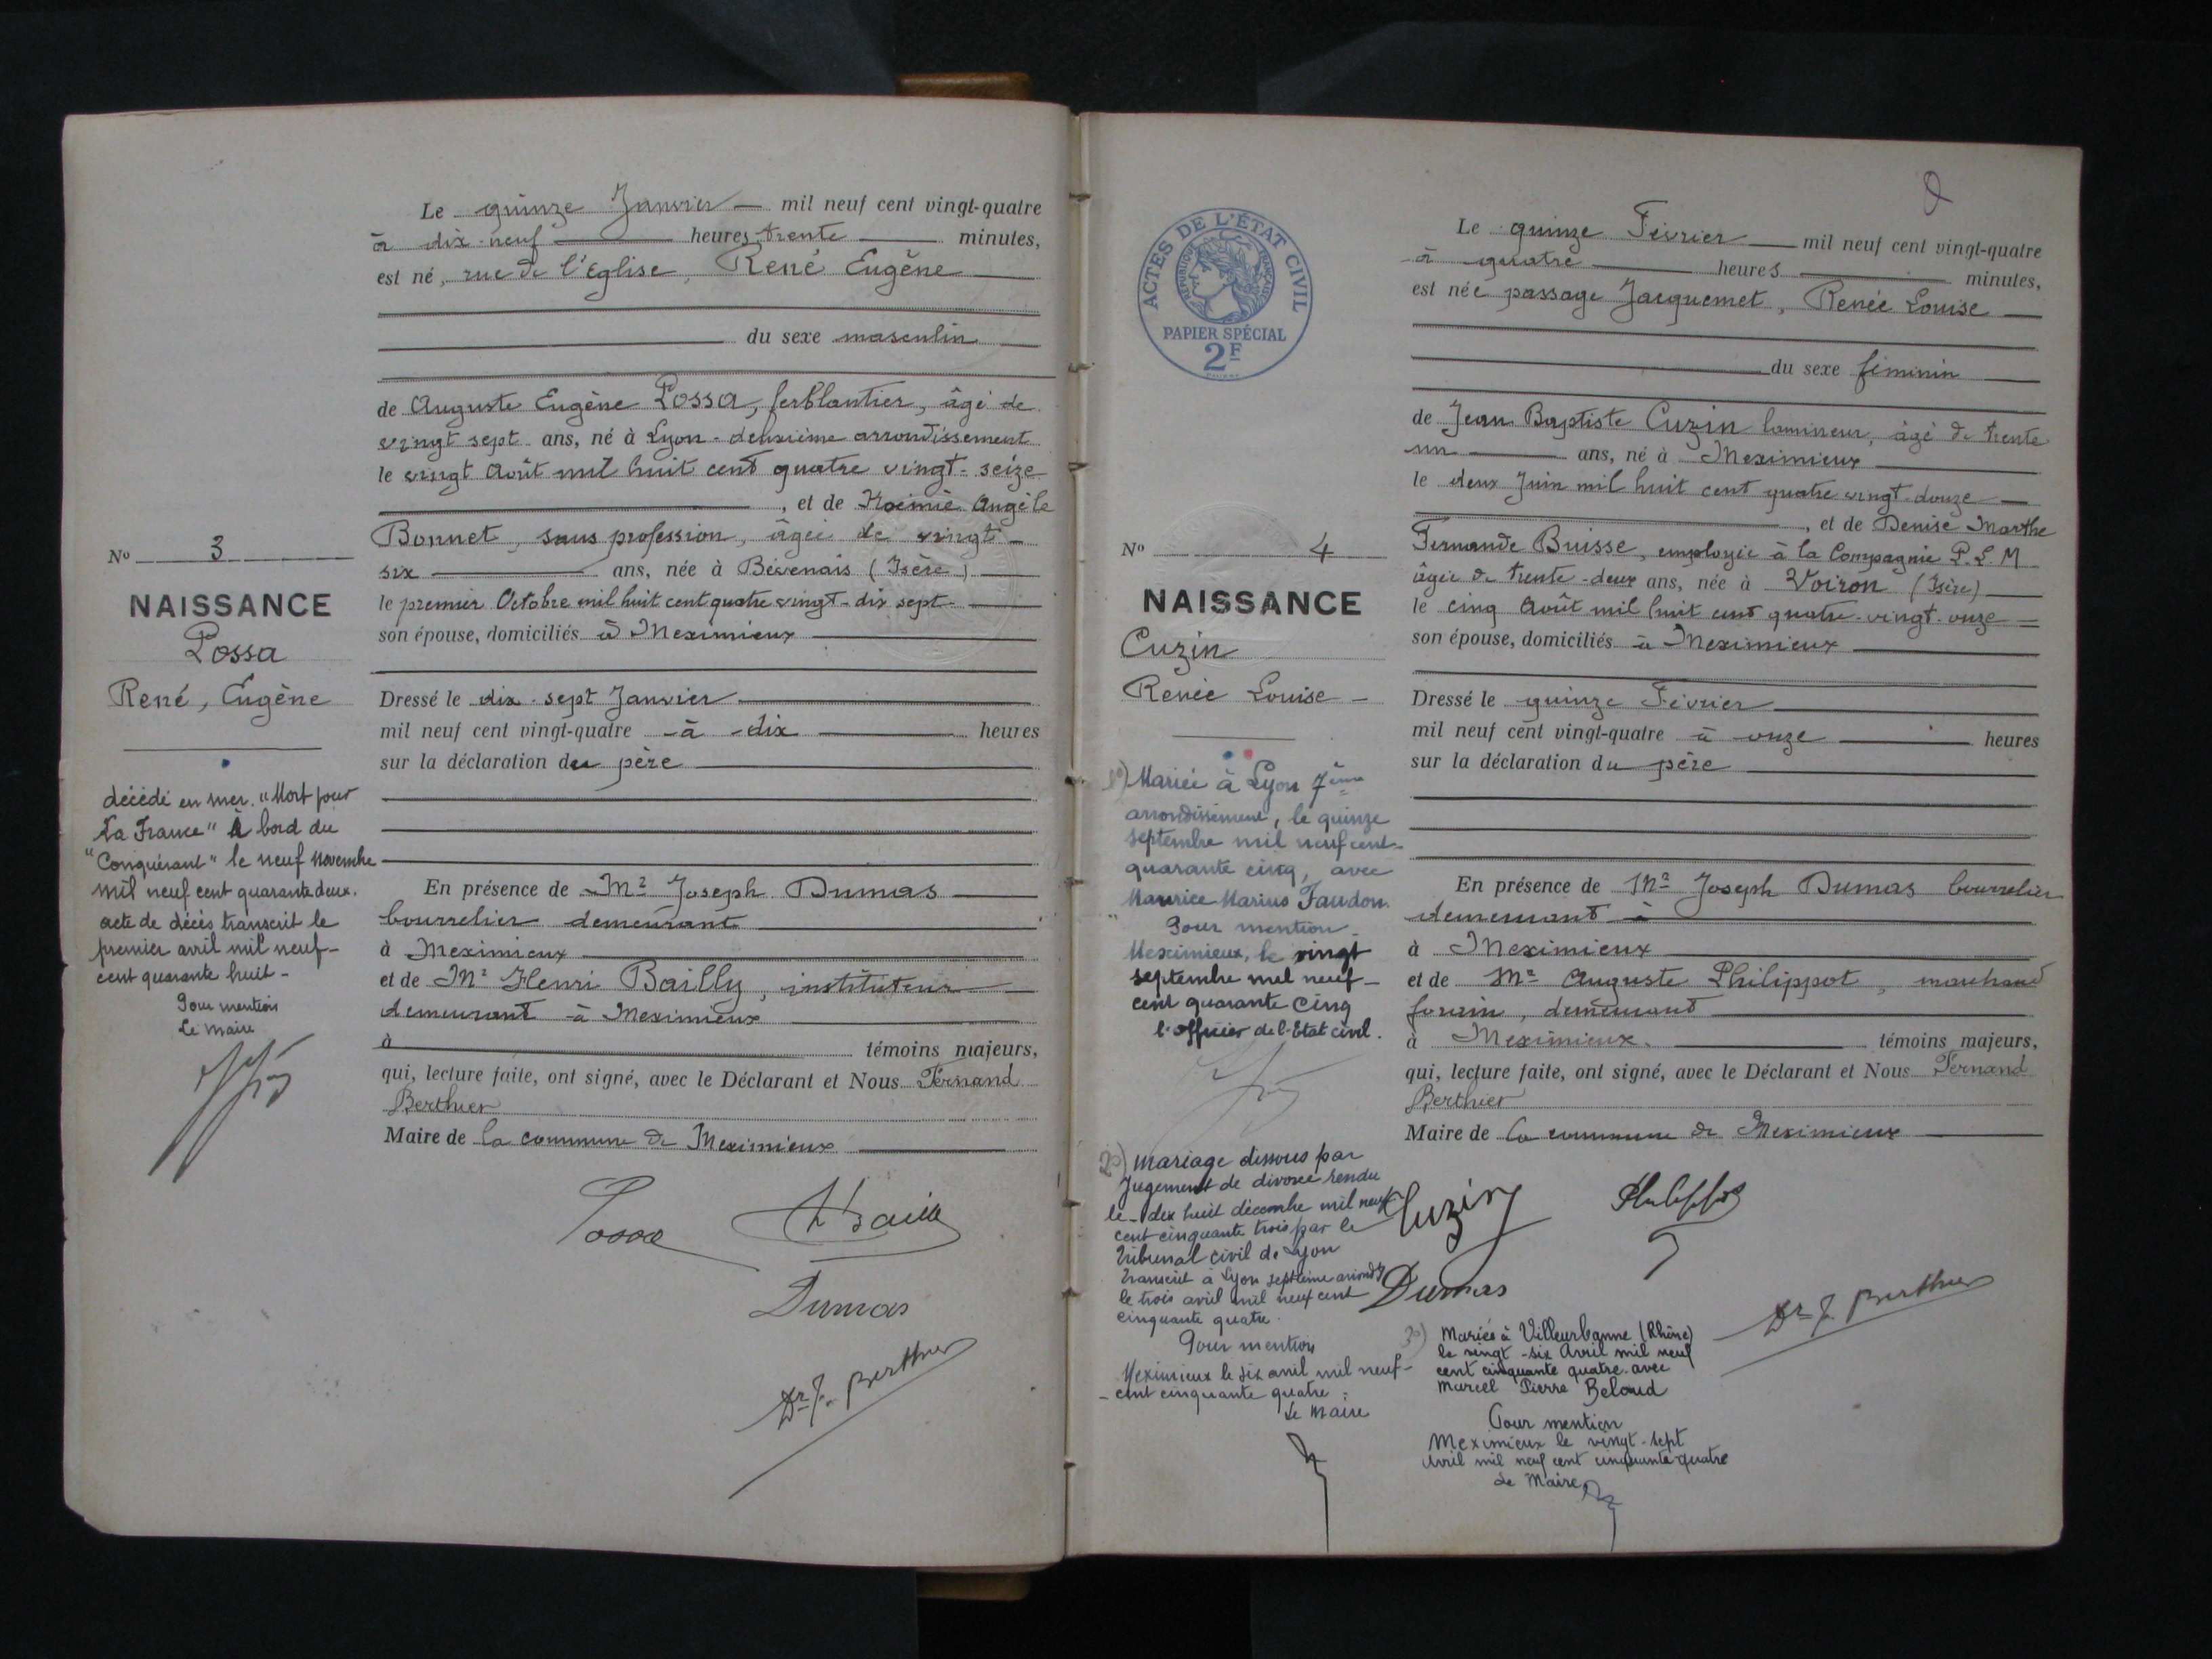 Le quinze Janvier mil neuf cent vingt-quatre
à dix-neuf heures trente minutes,
est né, rue de l'Eglise, René Eugène
du sexe masculin
de Auguste Eugène Possa, ferblantier, âgé de
vingt sept ans, né à Lyon - deuxième arrondissement
le vingt Août mil huit cent quatre vingt-seize
, et de Noémie Angèle
Bonnet, sans profession, âgée de vingt-
six ans, née à Bévenais (Isère)
le premier Octobre mil huit cent quatre vingt-dix sept
son épouse, domiciliés à Meximieux
Dressé le dix-sept Janvier
mil neuf cent vingt-quatre à dix heures
sur la déclaration du père
En présence de Mr Joseph Dumas
bourrelier demeurant
à Meximieux
et de Mr Henri Bailly, instituteur
demeurant à Meximieux
à témoins majeurs,
qui, lecture faite, ont signé, avec le Déclarant et Nous Fernand
Berthier
Maire de la commune de Meximieux
Possa
Dumas
Dr F. Berthier
No 3
NAISSANCE
Possa
René, Eugène
décédé en mer. "Mort pour
la France" à bord du
"Conquérant" le neuf Novembre
mil neuf cent quarante deux.
acte de décès transcrit le
premier avril mil neuf-
cent quarante huit-
Pour mention
Le Maire
ACTES DE L'ÉTAT CIVIL
RÉPUBLIQUE FRANÇAISE
PAPIER SPÉCIAL
2F
No 4
NAISSANCE
Cuzin
Renée Louise
1º) Mariée à Lyon 7ème
arrondissement, le quinze
septembre mil neuf cent-
quarante cinq, avec
Maurice Marius Faudon
Pour mention
Meximieux, le vingt
septembre mil neuf-
cent quarante cinq
l'officier de l'Etat civil.
2º) mariage dissous par
Jugement de divorce rendu
le dix huit décembre mil neuf
cent cinquante trois par le
Tribunal civil de Lyon
transcrit à Lyon septième arrondt
le trois avril mil neuf cent
cinquante quatre.
Pour mention
Meximieux le six avril mil neuf-
-cent cinquante quatre
Le Maire
Le quinze Février mil neuf cent vingt-quatre
à quatre heures minutes,
est née passage Jacquemet, Renée Louise
du sexe féminin
de Jean Baptiste Cuzin lamineur, âgé de trente
un ans, né à Meximieux
le deux Juin mil huit cent quatre vingt-douze
, et de Denise Marthe
Fernande Buisse, employée à la Compagnie P.L.M
âgée de trente-deux ans, née à Voiron (Isère)
le cinq Août mil huit cent quatre-vingt-onze
son épouse, domiciliés à Meximieux
Dressé le quinze Février
mil neuf cent vingt-quatre à onze heures
sur la déclaration du père
En présence de Mr Joseph Dumas bourrelier
demeurant à
à Meximieux
et de Mr Auguste Philippot, marchand
forain, demeurant
à Meximieux. témoins majeurs,
qui, lecture faite, ont signé, avec le Déclarant et Nous Fernand
Berthier
Maire de la commune de Meximieux
Cuzin
Dumas
Dr F. Berthier
3º) Mariée à Villeurbanne (Rhône)
le vingt-six Avril mil neuf
cent cinquante quatre avec
Marcel Pierre Beloud
Pour mention
Meximieux le vingt-sept
Avril mil neuf cent cinquante-quatre
Le Maire